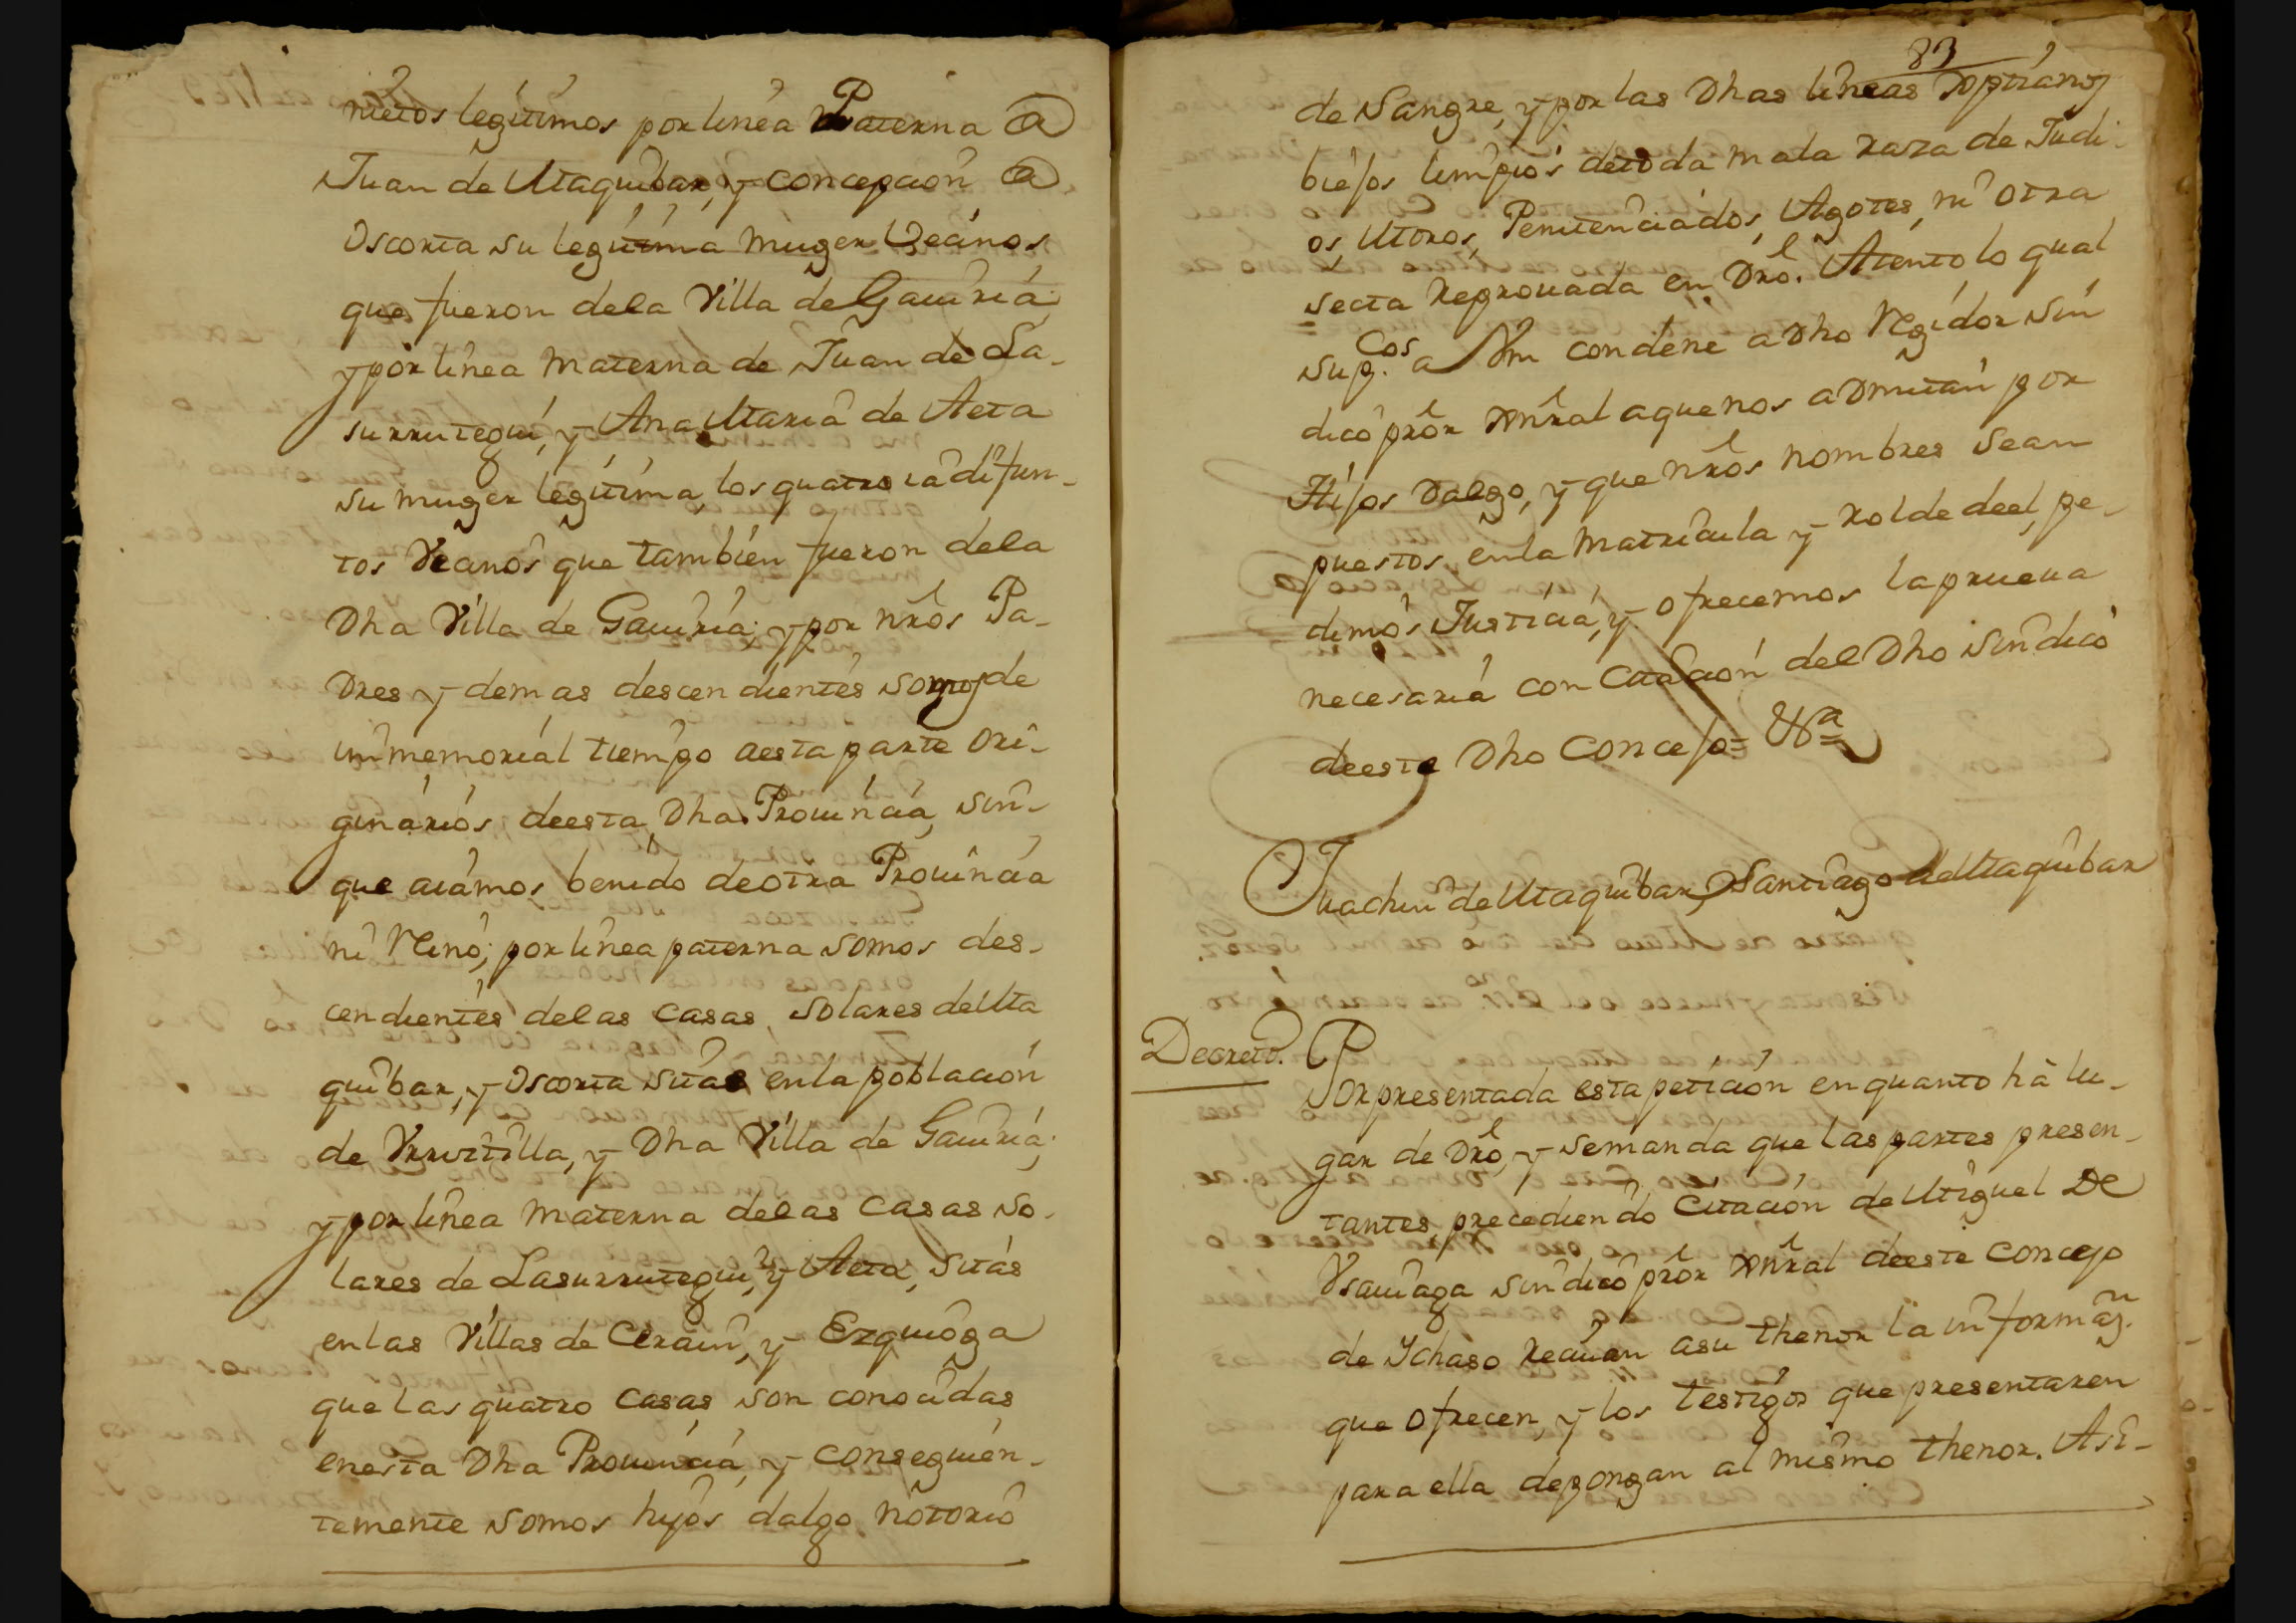 nietos legitimos por linea Paterna de
Juan de Maquibar, y concepcion de
Oscorta su legitima muger Vecinos
que fueron dela Villa de Gauiria;
y por linea Materna de Juan de La-
surrutegui, y Ana Maria de Aeta
su muger legitima, los quatro ia difun-
tos Vecinos que tambien fueron dela
Dha Villa de Gauiria; y por nros Pa-
dres y demas descendientes somos de
immemorial tiempo aesta parte ori-
ginarios deesta Dha Prouincia, sin-
que aiamos benido deotra Prouincia
ni Reino; por linea paterna somos des-
cendientes delas casas solares de Ma
quibar, y Oscorta sitas enla poblacion
de Vrretilla, y Dha Villa de Gauiria;
y por linea Materna delas casas so-
lares de Lasurrutegui, y Aeta, sitas
enlas Villas de Cerain, y Ezquioga
que las quatro casas son conocidas
enesta Dha Prouincia, y consequien-
temente somos hijos dalgo notorio
83
de Sangre, y por las Dhas lineas Xptianos
biejos limpios detoda mala raza de Judi-
os, Moros, Penitenciados, Agotes, ni otra
secta Reprouada en Dro. Atento lo qual
supcos. a Vm condene a Dho Regidor Sin
dico pror Gnral aque nos admitan por
Hijos dalgo, y que nros nombres sean
puestos enla Matricula y Rolde deel, pe-
dimos Justicia, y ofrecemos la prueua
necesaria con Citacion del Dho Sindico
deeste Dho Concejo= Va=
Juachin de Maquibar Santiago de Maquibar
Decreto. Por presentada esta peticion en quanto há lu-
gar de Dro, y se manda que las partes presen-
tantes, precediendo Citacion de Miguel De
Vsauiaga Sindico pror Gnral deeste Concejo
de Ichaso Reciuan asu thenor la informazn.
que ofrecen, y los testigos que presentaren
para ella depongan al mismo thenor. Asi-